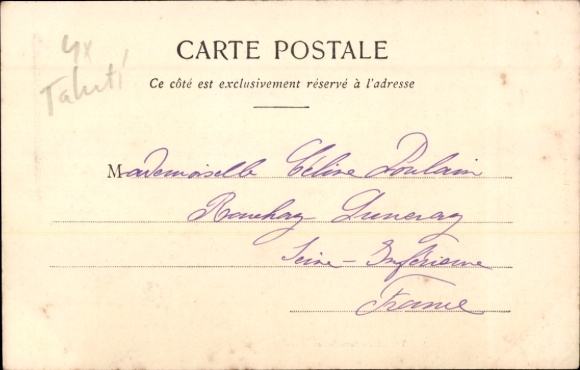 4x
Tahiti
CARTE POSTALE
Ce côté est exclusivement réservé à l'adresse
Mademoiselle Céline Poulain
Luneray
Seine-Inférieure
France